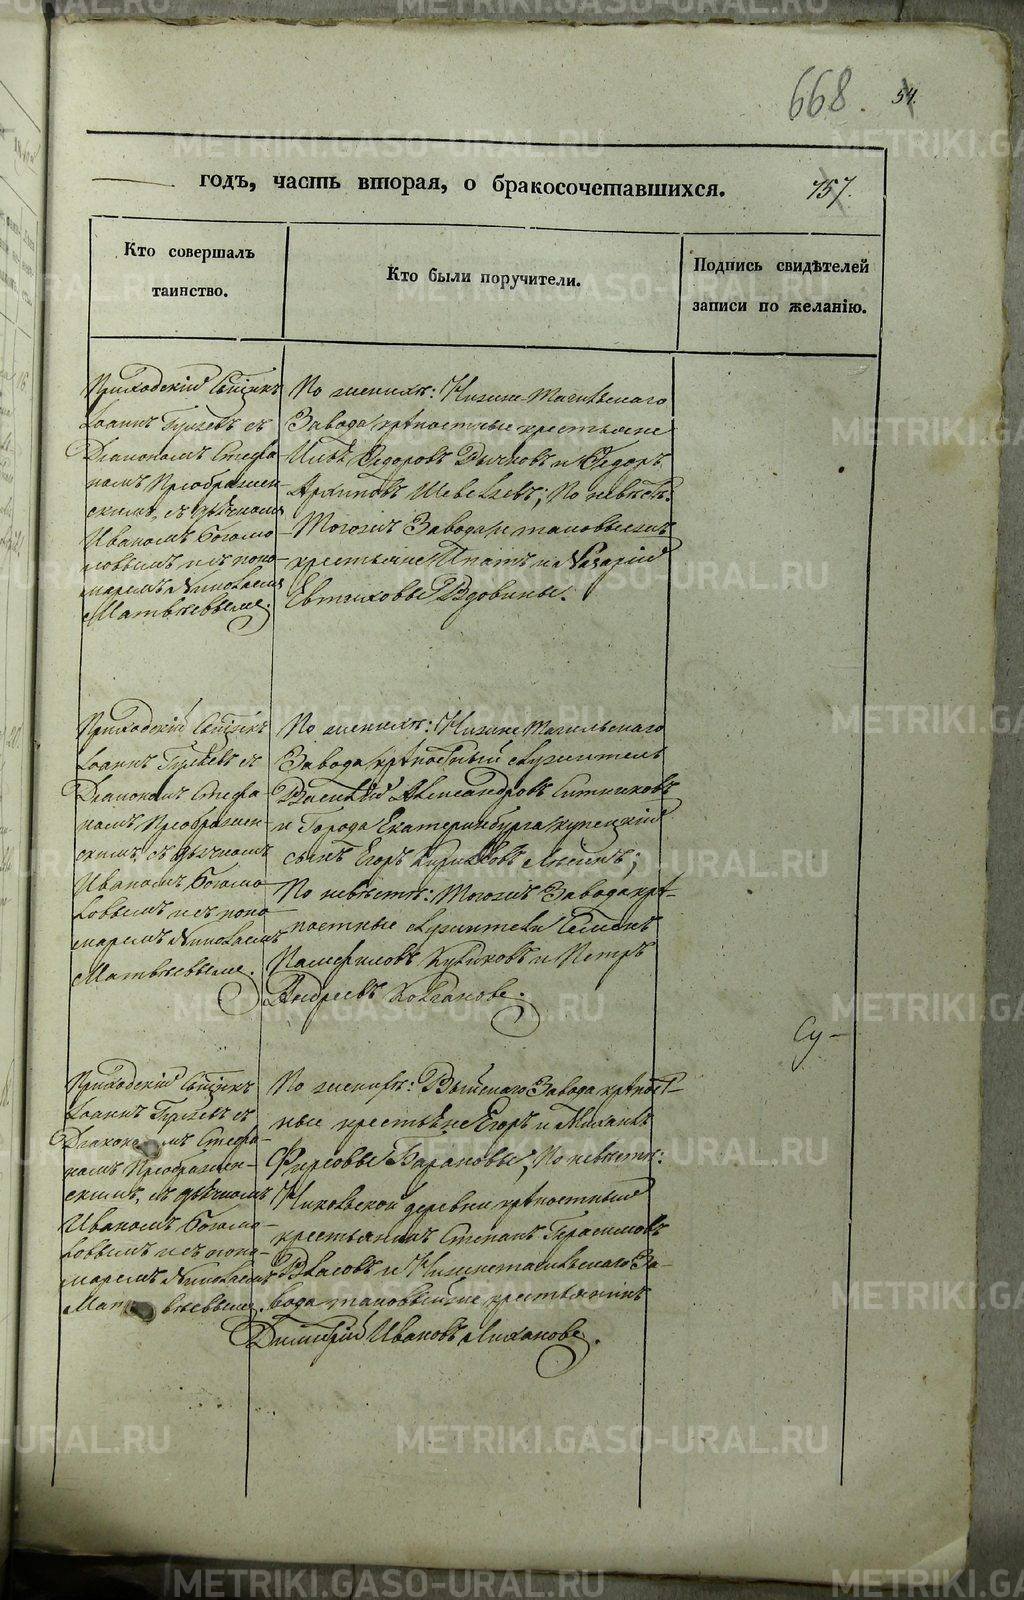 668. 54.
годъ, часть вторая, о бракосочетавшихся. 157.
Кто совершалъ
таинство.
Кто были поручители.
Подпись свидѣтелей
записи по желанію.
Приходскій Свщнкъ
Іоаннъ Гуляевъ съ
Діакономъ Стефа-
номъ Преображен-
скимъ, съ дьячкомъ
Иваномъ Богомо-
ловымъ и съ поно-
маремъ Николаемъ
Матвѣевымъ.
По женихѣ: Нижне-Тагильскаго
Завода крѣпостные крестьяне
Илья Ѳедоровъ Рычковъ и Ѳедоръ
Архиповъ Шевелевъ; По невѣстѣ:
Тогожъ Завода и таковые жъ
крестьяне Ипатъ и Назарій
Евтиховы Вдовины.
Приходскій Свщнкъ
Іоаннъ Гуляевъ съ
Діакономъ Стефа-
номъ Преображен-
скимъ, съ дьячкомъ
Иваномъ Богомо-
ловымъ и съ поно-
маремъ Николаемъ
Матвѣевымъ.
По женихѣ: Нижне Тагильскаго
Завода крѣпостный служитель
Василій Александровъ Ситниковъ
и Города Екатеринбурга купецкій
сынъ Егоръ Кириловъ
По невѣстѣ: Тогожъ Завода крѣ-
постные служители Семенъ
Памфиловъ Куликовъ и Петръ
Андреевъ Колгановъ.
Су-
Приходскій Свщнкъ
Іоаннъ Гуляевъ съ
Діакономъ Стефа-
номъ Преображен-
скимъ, съ дьячкомъ
Иваномъ Богомо-
ловымъ и съ поно-
маремъ Николаемъ
Матвѣевымъ.
По женихѣ: Выйскаго Завода крѣпост-
ные крестьяне Егоръ и Михаилъ
Фирсовы Барановы; По невѣстѣ:
Никольской деревни крѣпостный
крестьянинъ Степанъ Герасимовъ
Власовъ и Нижнетагильскаго За-
вода таковый же крестьянинъ
Димитрій Ивановъ Лихановъ.
METRIKI.GASO-URAL.RU